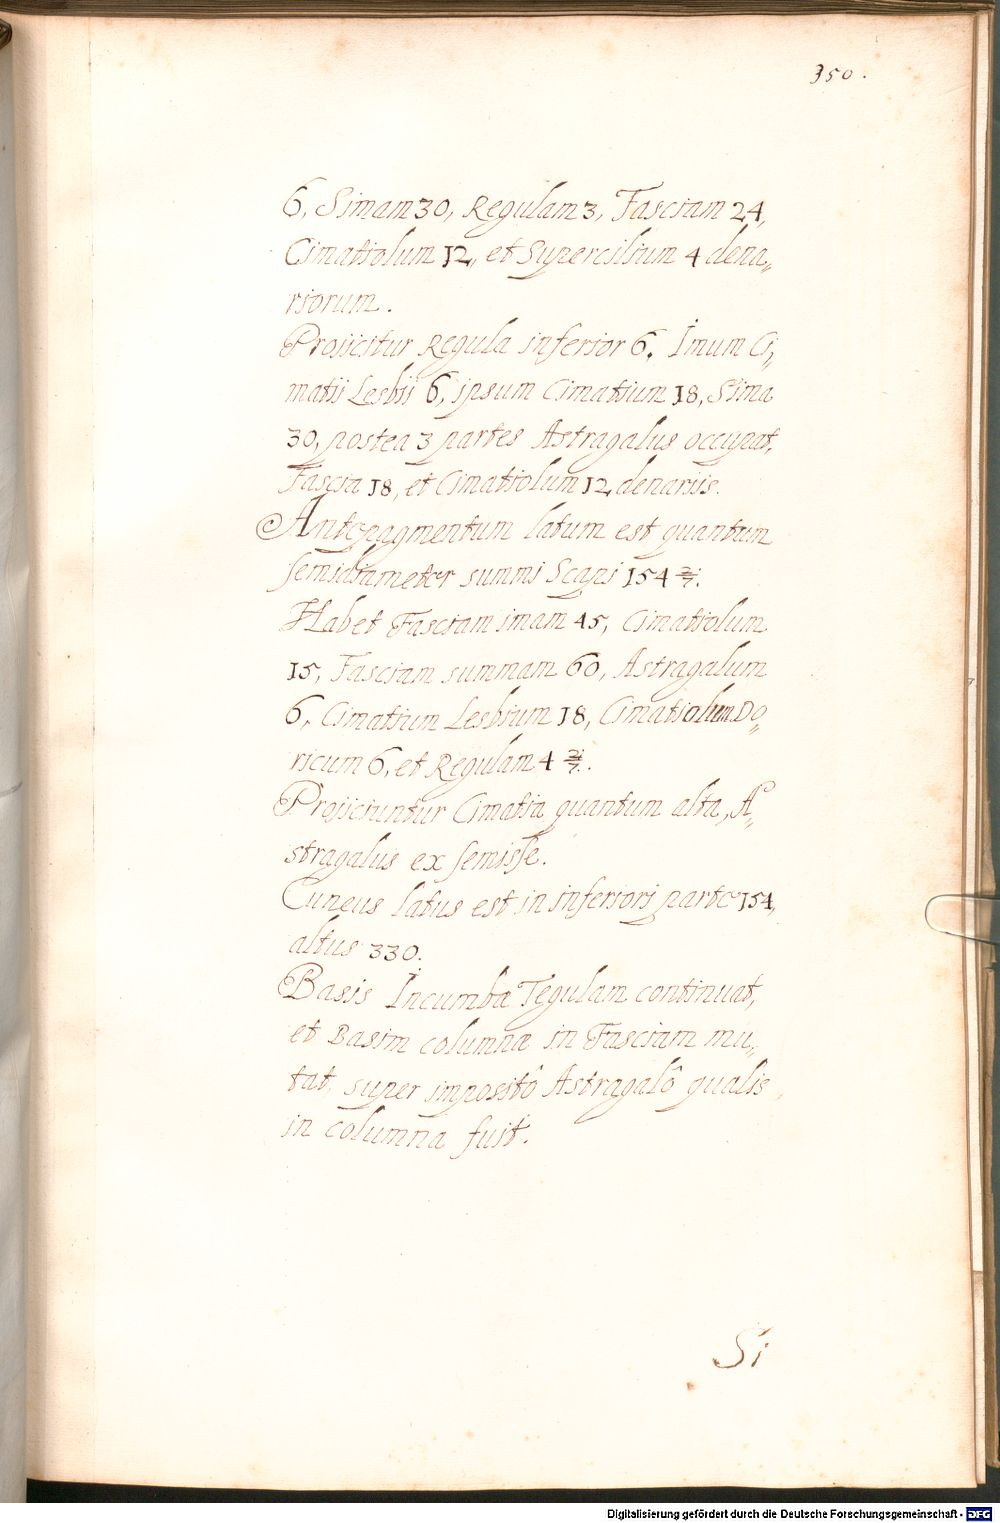 350.
6, Simam 30, Regulam 3, Fasciam 24,
Cimatiolum 12, et Supercilium 4 dena„
riorum.
Projicitur Regula inferior 6. Imum Ci„
matii Lesbii 6, ipsum Cimatium 18, Sima
30, postea 3 partes Astragalus occupat,
Fascia 18, et Cimatiolum 12 denariis.
Antepagmentum latum est quantum
semidiameter summi Scapi 154 2/7.
Habet Fasciam imam 45, Cimatiolum
15, Fasciam summam 60, Astragalum
6, Cimatium Lesbium 18, Cimatiolum Do„
ricum 6, et Regulam 4 2/7.
Projiciuntur Cimatia quantum alta, A„
stragalus ex semisse.
Cuneus latus est in inferiori parte 154,
altus 330.
Basis Incumbæ Tegulam continuat,
et Basim columnæ in Fasciam mu„
tat, super impositô Astragalô qualis
in columna fuit.
Si
Digitalisierung gefördert durch die Deutsche Forschungsgemeinschaft - DFG